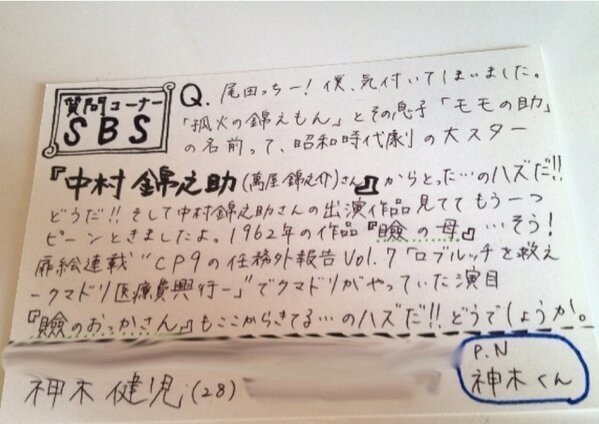 質問コーナー
SBS
Q. 尾田っちー!僕、気付いてしまいました。
「狐火の錦えもん」とその息子「モモの助」
の名前って、昭和時代劇の大スター
『中村 錦之助(萬屋 錦之介)さん』からとった…のハズだ!!
どうだ!!そして中村錦之助さんの出演作品見ててもう一つ
ピーンときましたよ。1962年の作品『瞼の母』…そう!
扉絵連載“CP9の任務外報告Vol.7「ロブ・ルッチを救え
ークマドリ医療費興行ー」”でクマドリがやっていた演目
『瞼のおっかさん』もここからきてる…のハズだ!!どうでしょうか。
神木 健児(28)
P.N
神木くん